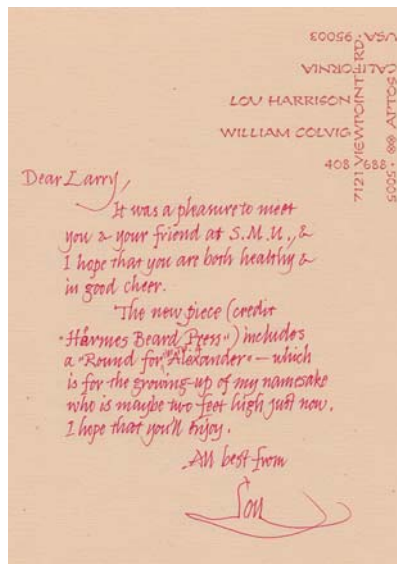 LOU HARRISON
WILLIAM COLVIG
7121 VIEWPOINT RD
APTOS
CALIFORNIA
USA · 95003
408 · 688 ·
Dear Larry,
It was a pleasure to meet
you & your friend at S.M.U., &
I hope that you are both healthy &
in good cheer.
The new piece (credit
"Hermes Beard Press") includes
a "Round for Alexander" — which
is for the growing-up of my namesake
who is maybe two feet high just now.
I hope that you'll enjoy.
All best from
Lou